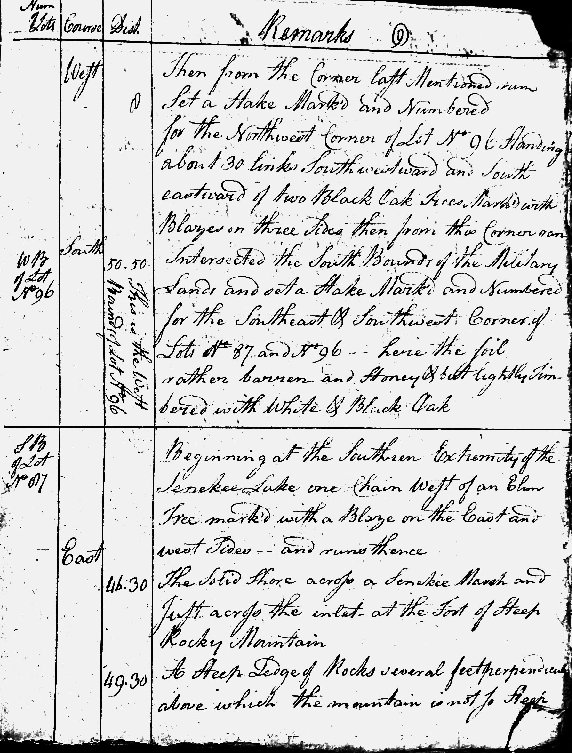 Num
Lots Course Dist. Remarks (9)
West
Then from the Corner last Mentioned run
Set a Stake Mark'd and Numbered
for the Northwest Corner of Lot No 96 Standing
about 30 links Southwestward and South
eastward of two Black Oak Trees Mark'd with
Blazes on three Sides then from this Corner ran
South
W B
of Lot
No 96
50.50
This is the West
Bound of Lot No 96
Intersected the South Bounds of the Military
Lands and set a Stake Mark'd and Numbered
for the Southeast & Southwest Corner of
Lots No 87 and No 96 -- here the soil
rather barren and Stoney & but lightly Tim-
bered with White & Black Oak
S B
of Lot
No 87
Beginning at the Southern Extremity of the
Senekee Lake one Chain West of an Elm
Tree mark'd with a Blaze on the East and
west Sides -- and runs thence
East
46.30 The Solid Shore across a Senekee Marsh and
Just across the inlet at the Foot of Steep
Rocky Mountain
49.30 A Steep Ledge of Rocks several feet perpendicular
above which the mountain is not so Steep